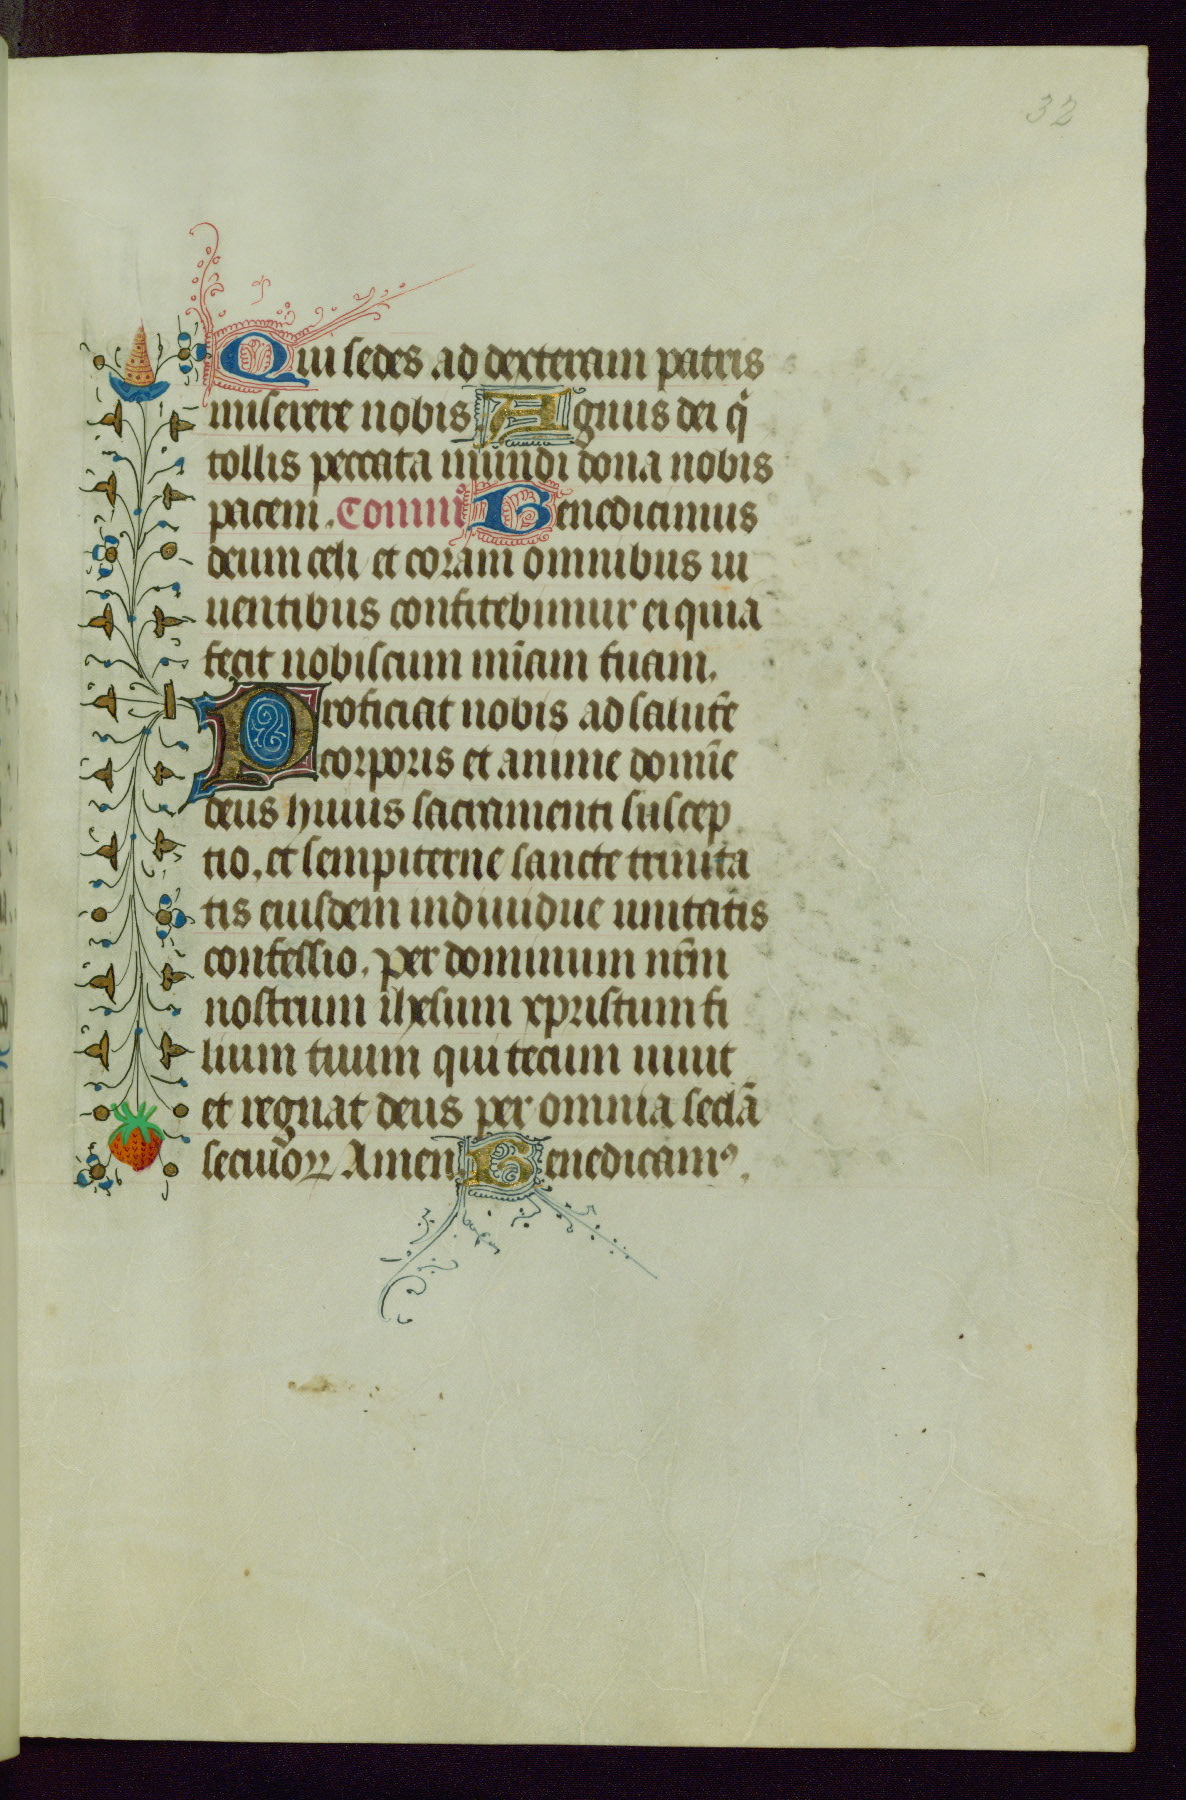 32
Qui sedes ad dexteram patris
miserere nobis Agnus dei q̄
tollis peccata mundi dona nobis
pacem. Com̄u Benedicimus
deum celi et coram omnibus ui
uentibus confitebimur ei quia
fecit nobiscum mīam suam.
Proficiat nobis ad salutē
corporis et anime domīe
deus huius sacramenti suscep
tio. et sempiterne sancte trinita
tis eiusdem indiuidue unitatis
confessio. per dominum nr̄m
nostrum ih̄esum xpristum fi
lium tuum qui tecum uiuit
et regnat deus per omnia seclā
seculoꝝ Amen Benedicamꝰ.